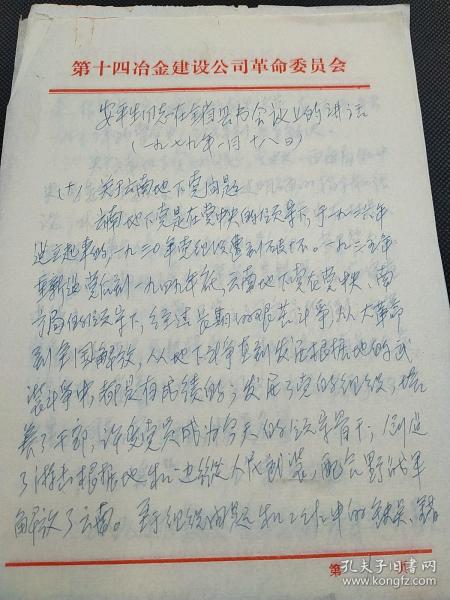 第十四冶金建设公司革命委员会
安平生同志在全省县书会议上的讲话
(一九七九年一月十八日)
(十)关于云南地下党问题
云南地下党是在党中央的领导下,于一九二六年
建立起来的,一九三〇年党组织遭到破坏。一九三五年
重新建党后到一九四九年底,云南地下党在党中央、南
方局的领导下,经过长期的艰苦斗争,从大革命
到全国解放,从地下斗争直到发展根据地的武
装斗争中,都是有成绩的;发展了党的组织,培
养了干部,许多党员成为今天的领导骨干;创建
了游击根据地和边纵人民武装,配合野战军
解放了云南。至于组织问题和工作中的缺点、错
第 页
孔夫子旧书网
www.kongfz.com